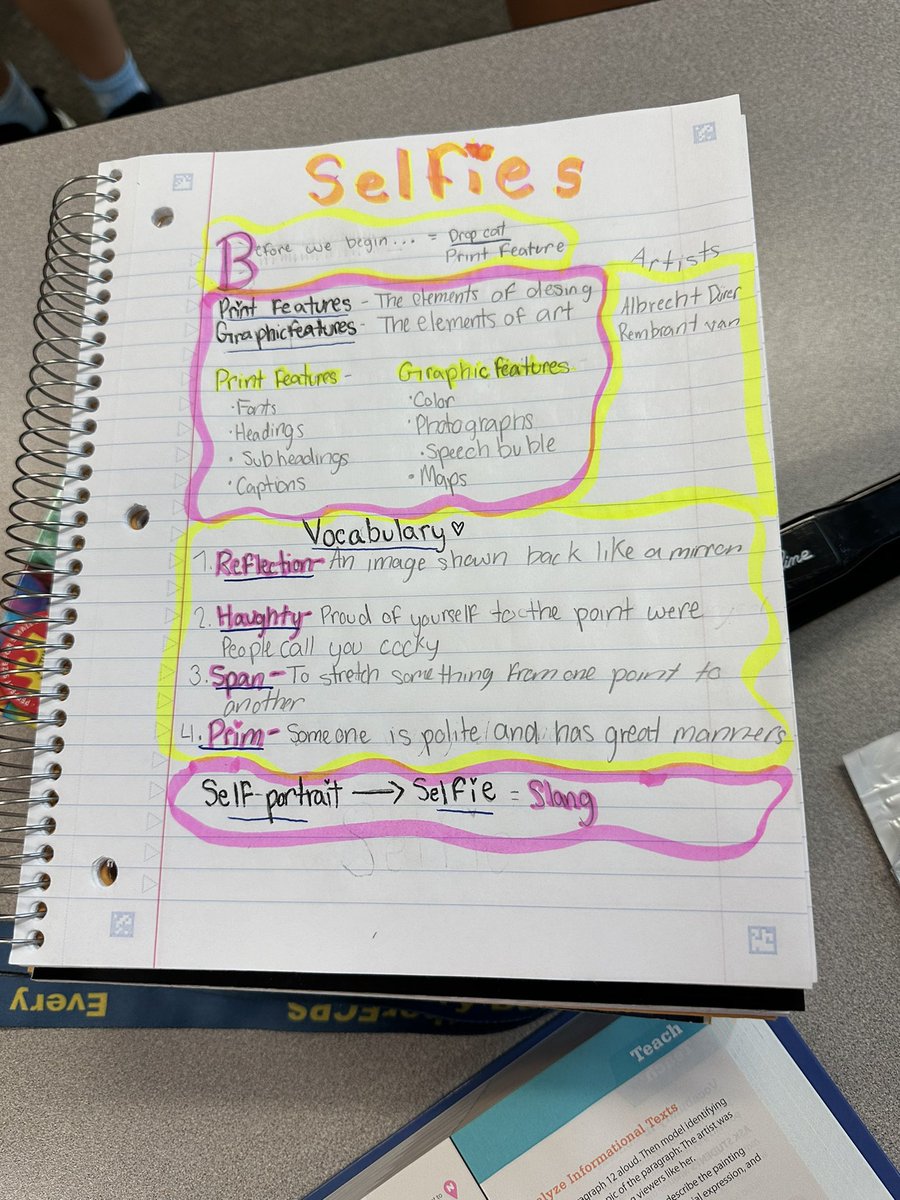 Selfies
Before we begin... = Drop cat
Print Feature
Artists
Albrecht Dürer
Rembrant van
Print Features - The elements of desing
Graphic features - The elements of art
Print Features -
·Fonts
·Headings
·Subheadings
·Captions
Graphic features
·Color
·Photographs
·Speech buble
·Maps
Vocabulary
1. Reflection- An image shown back like a mirror
2. Haughty- Proud of yourself to the point were
People call you cocky
3. Span- To stretch something from one point to
another
4. Prim- Someone is polite and has great manners
Self-portrait → Selfie = Slang
Every
Teach
alyze Informational Texts
graph 12 aloud. Then model identifying
pic of the paragraph: The artist was
viewers like her.
describe the painting
ial expression, and